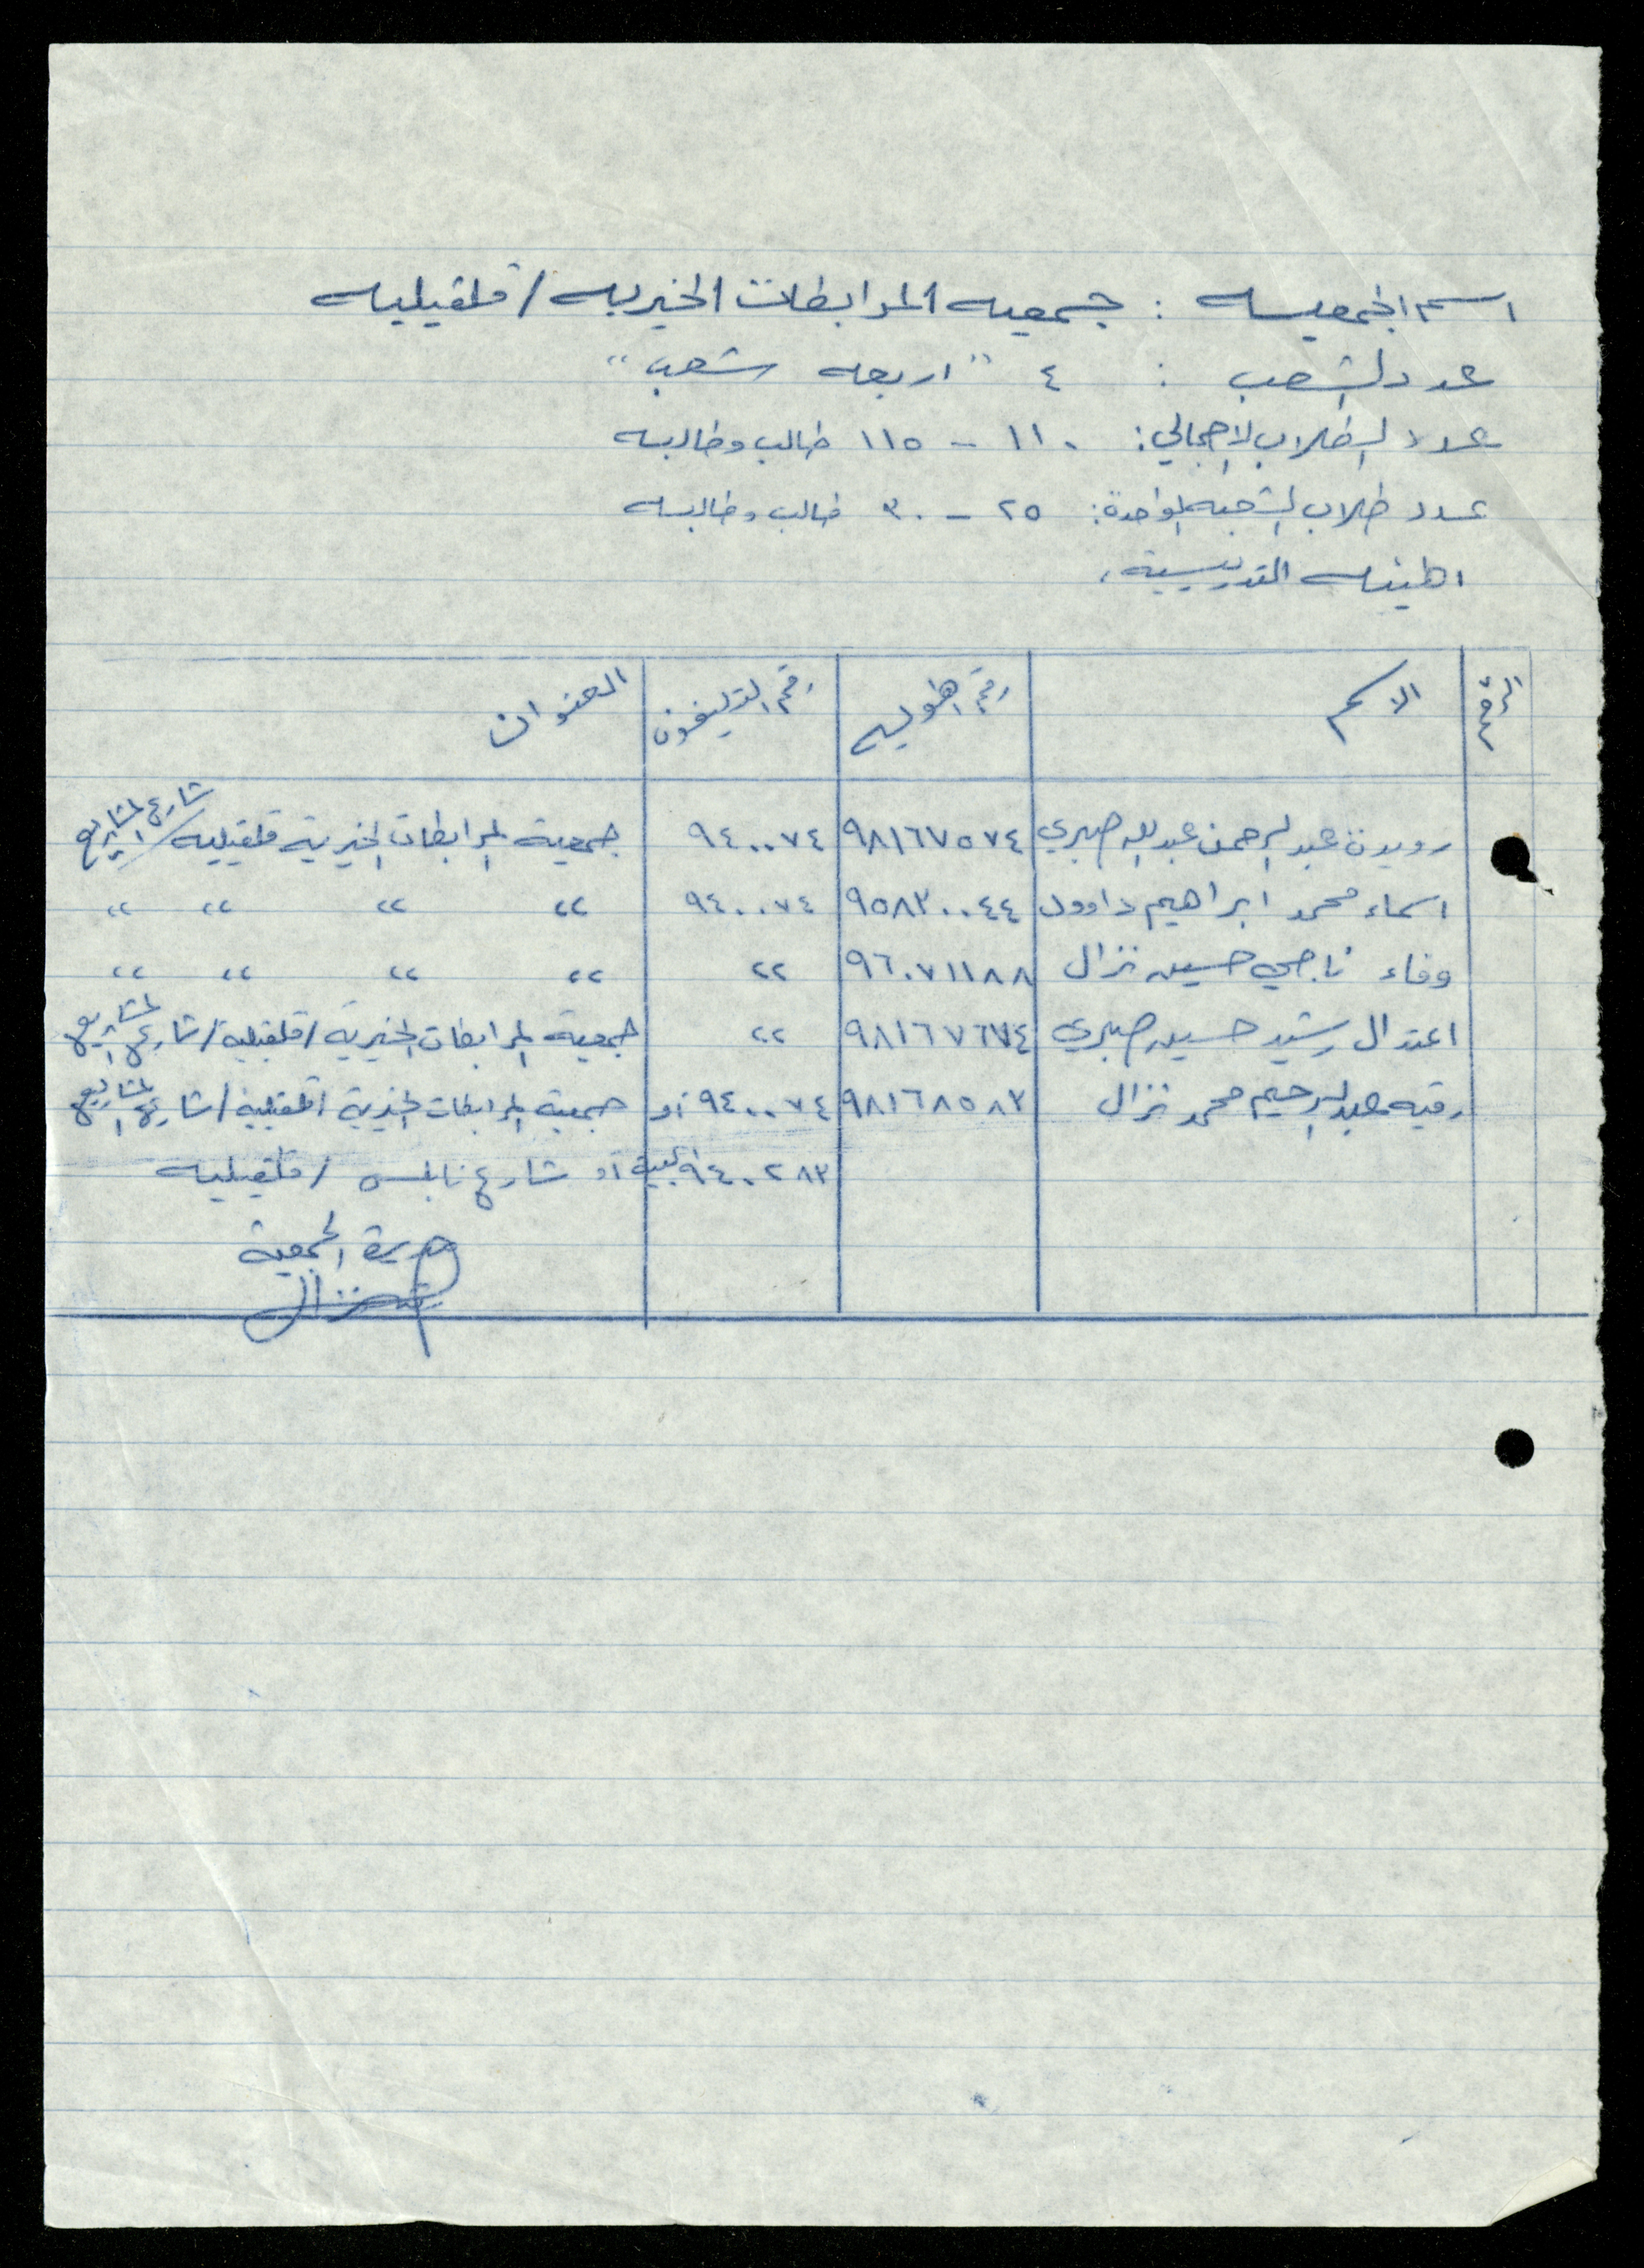 اسم الجمعيه : جمعيه المرابطات الخيريه / قلقيليه
عدد الشعب : ٤ "اربعه شعب"
عدد الطلاب الاجمالي: ١١٠ - ١١٥ طالب وطالبه
عدد طلاب الشعبه الواحدة: ٢٥ - ٣٠ طالب وطالبه
الهيئه التدريسية،
الرقم الاسم رقم الهويه رقم التليفون العنوان
رويدة عبد الرحمن عبد الله صبري ٩٨١٦٧٥٧٤ ٩٤٠٠٧٤ جمعية المرابطات الخيرية قلقيليه / شارع المشاريع
اسماء محمد ابراهيم داوود ٩٥٨٣٠٠٤٤ ٩٤٠٠٧٤ " " " "
وفاء ناجي حسين نزال ٩٦٠٧١١٨٨ " " " " "
اعتدال رشيد حسين صبري ٩٨١٦٧٦٧٤ " جمعية المرابطات الخيرية / قلقيلية / شارع المشاريع
رقيه عبد الرحيم محمد نزال ٩٨١٦٨٥٨٣ ٩٤٠٠٧٤ أو جمعية المرابطات الخيرية / قلقيلية / شارع المشاريع
٩٤٠٢٨٣ البيت أو شارع نابلس / قلقيليه
مديرة الجمعية